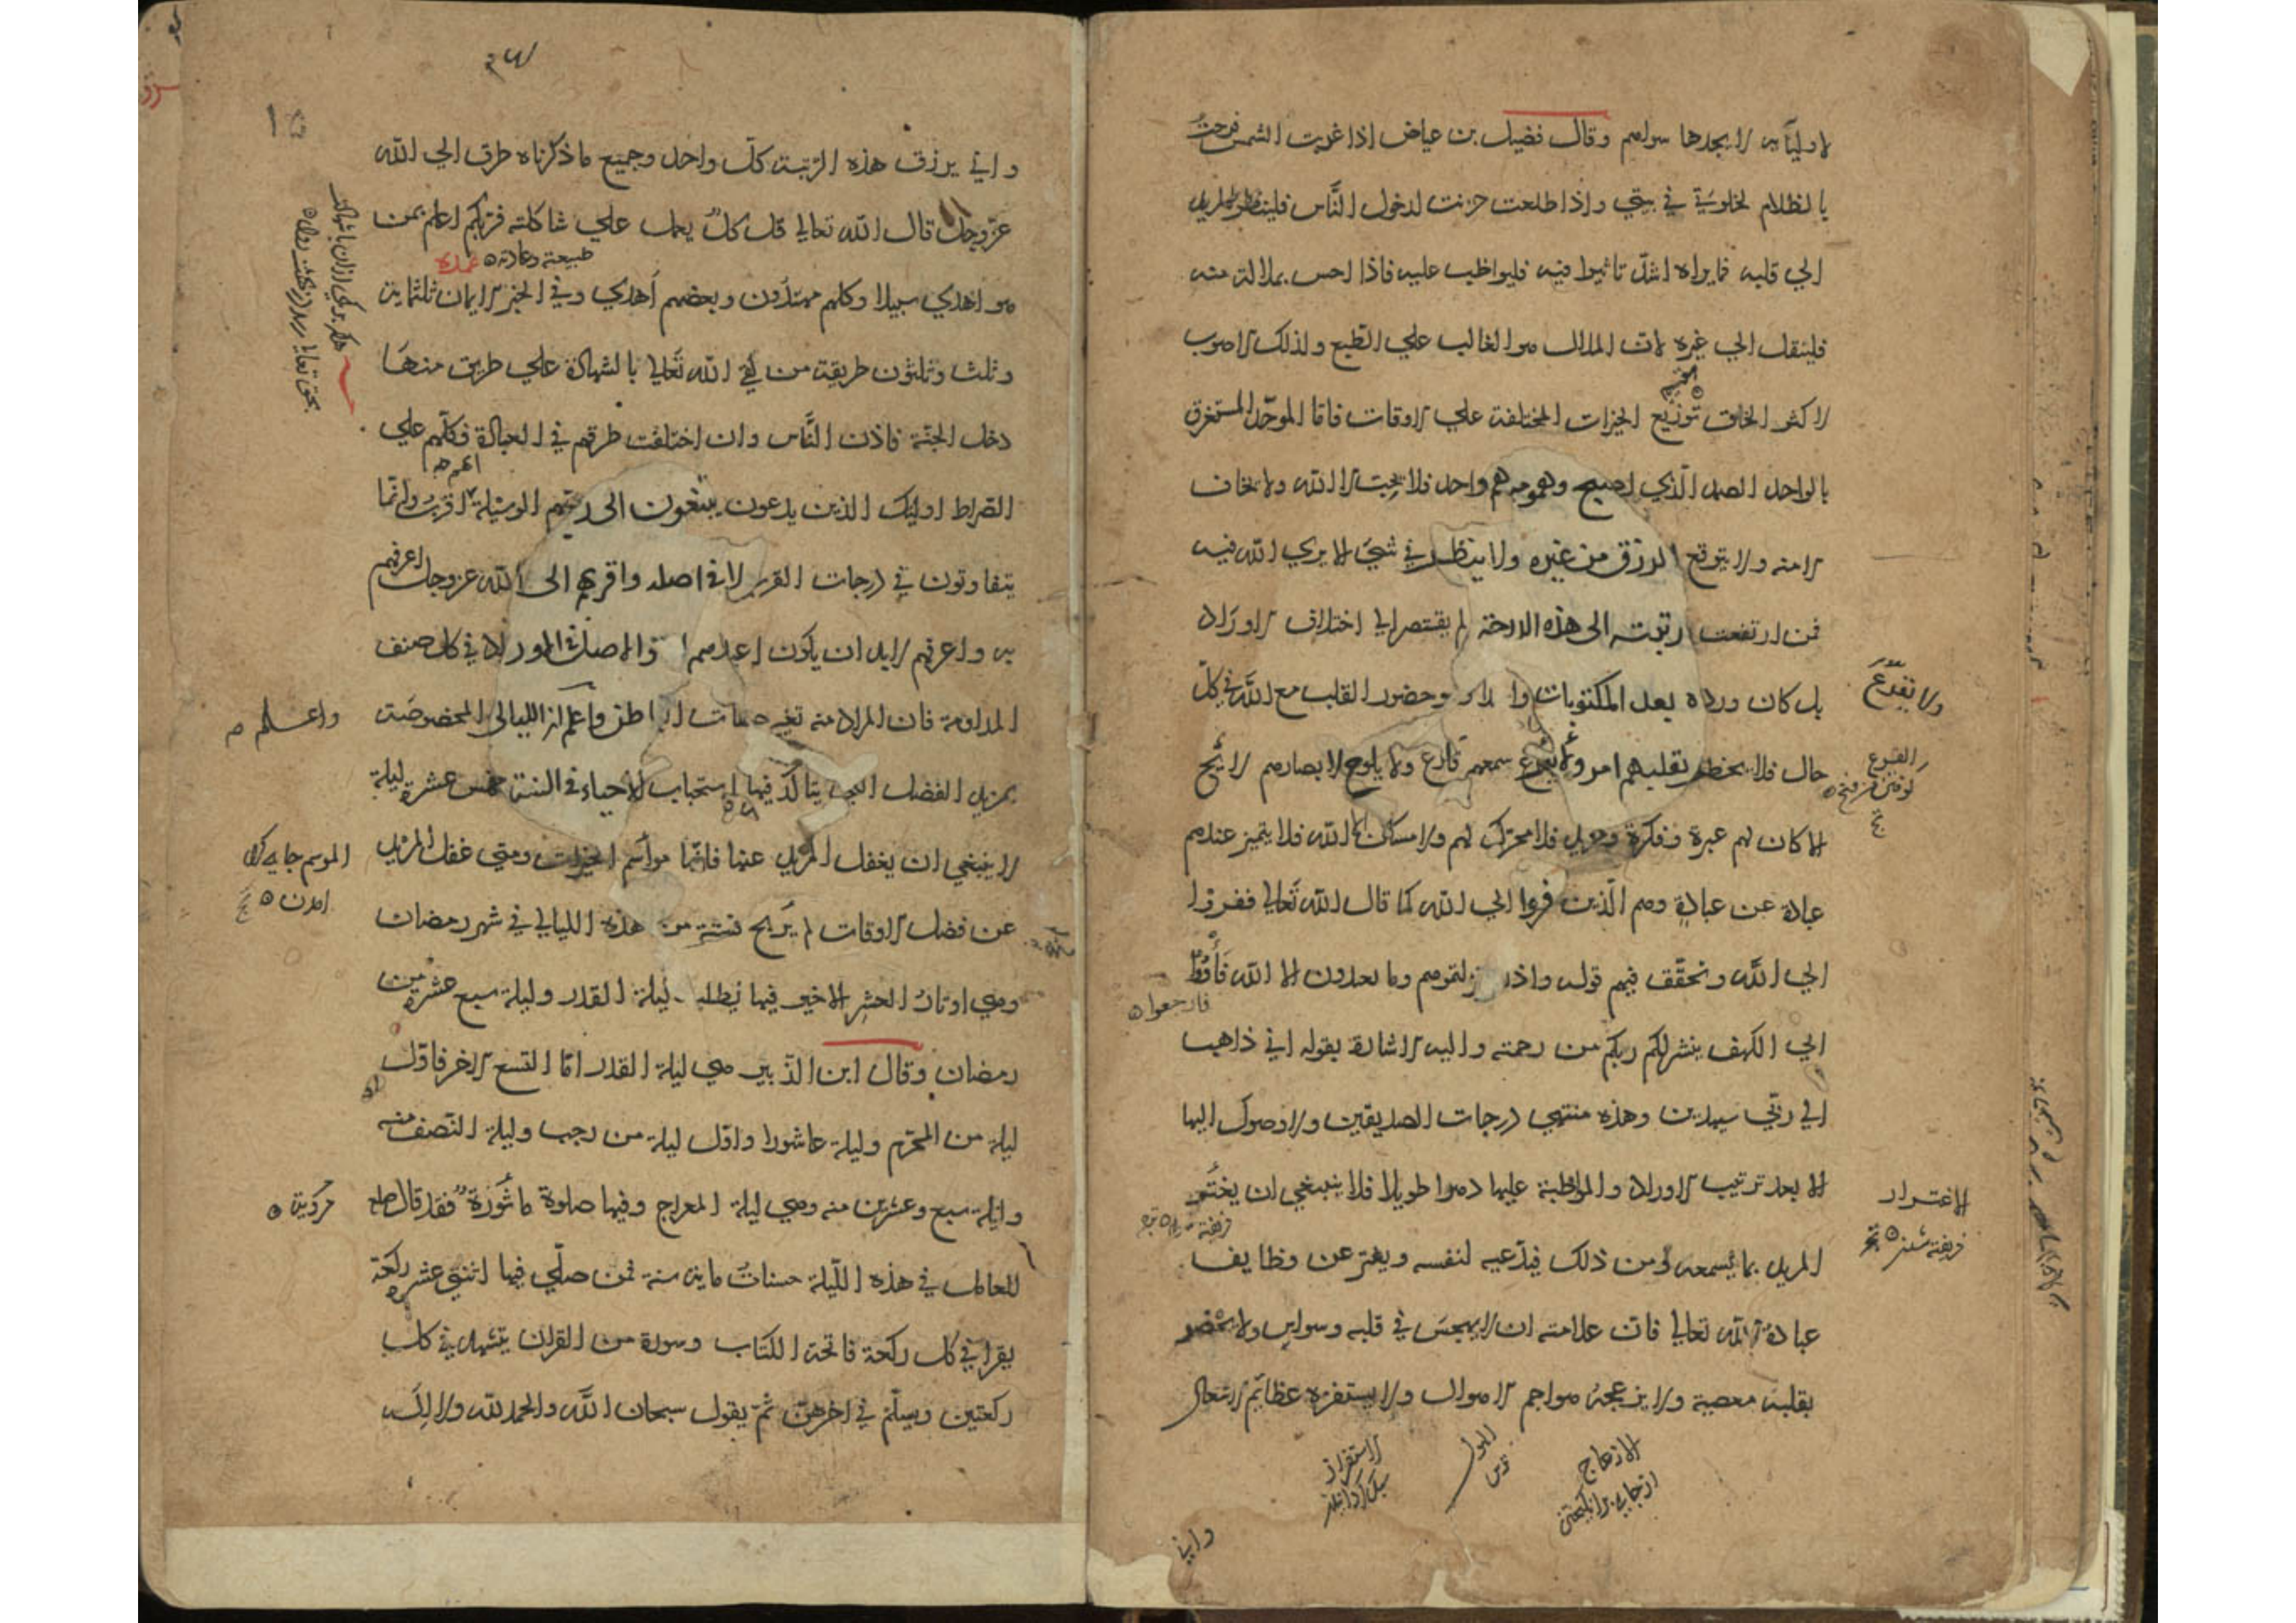 لاوليائه لا يجدها سواهم وقال فضيل بن عياض اذا غربت الشمس فرحت
بالظلام لخلوتي في بيتي واذا طلعت حزنت لدخول الناس فلينظر المريد
الي قلبه فما يراه اشد تاثيرا فيه فليواظب عليه فاذا احس بملالة منه
فلينقل الي غيره لان الملال هو الغالب علي الطبع ولذلك الاصوب
لاكثر الخلق توزيع الخيرات المختلفة علي الاوقات فاما الموحد المستغرق
بالواحد الصمد الذي اصبح وهمومه هم واحد فلا يحب الا الله ولا يخاف
الا منه ولا يتوقع الرزق من غيره ولا ينظر في شيئ الا يري الله فيه
فمن ارتفعت رتبته الى هذه الدرجة لم يقتصر الي اختلاف الاوراد
بل كان ورده بعد المكتوبات وحضور القلب مع الله في كل
ولا يقرع
حال فلا يخطر بقلبهم امر ولا يقرع سمعهم قارع ولا يلوح لابصارهم لائح
القرع
الا كان لهم عبرة وفكرة ومزيد فلا محرك لهم ولا مسكن الا الله فلا يتميز عندهم
عبادة عن عبادة وهم الذين فروا الي الله كما قال الله تعالي ففروا
الي الله وتحقق فيهم قوله واذ اعتزلتموهم وما يعبدون الا الله فأووا
فارجعوا
الي الكهف ينشر لكم ربكم من رحمته واليه الاشارة بقوله اني ذاهب
الي ربي سيهدين وهذه منتهي درجات الصديقين ولا وصول اليها
الا بعد ترتيب الاوراد والمواظبة عليها دهرا طويلا فلا ينبغي ان يغتر
الاغترار
فريفته شدن
المريد بما يسمعه من ذلك فيدعيه لنفسه ويفتر عن وظايف
عبادة الله تعالي فان علامته ان لا يهجس في قلبه وسواس ولا يخطر
بقلبه معصية ولا يزعجه هواجم الاهوال ولا يستفزه عظائم الاشغال
الازعاج
از جاي برانگيختن
الهول
ترس
الاستفزاز
سبک گردانيدن
واني
١٥
واني يرزق هذه الرتبة كل واحد وجميع ما ذكرناه طرق الي الله
عزوجل قال الله تعالي قل كل يعمل علي شاكلته فربكم اعلم بمن
طبيعته وعادته
هو اهدي سبيلا وكلهم مهتدون وبعضهم أهدي وفي الخبر الايمان ثلثماية
وثلث وثلثون طريقة من لقي الله تعالي بالشهادة علي طريق منها
دخل الجنة فاذن الناس وان اختلفت طرقهم في العبادة فكلهم علي
الصراط اوليك الذين يدعون يبتغون الى ربهم الوسيلة ايهم اقرب وانما
يتفاوتون في درجات القرب لا في اصله واقربهم الى الله عزوجل اعرفهم
به واعرفهم لابد ان يكون اعبدهم والاصل في الاوراد في كل صنف
المداومة فان المراد منه تغيير صفات الباطن واعلم ان الليالى المخصوصة
واعلم
بمزيد الفضل التي يتاكد فيها استحباب الاحياء في السنة خمس عشرة ليلة
لا ينبغي ان يغفل المريد عنها فانها مواسم الخيرات ومتي غفل المريد
الموسم جايگاه
امدن
عن فضل الاوقات لم يربح فستة من هذه الليالي في شهر رمضان
وهي اوتار العشر الاخير فيها يطلب ليلة القدر وليلة سبع عشرة من
رمضان وقال ابن الزبير هي ليلة القدر اما التسع الاخر فاول
ليلة من المحرم وليلة عاشورا واول ليلة من رجب وليلة النصف منه
وليلة سبع وعشرين منه وهي ليلة المعراج وفيها صلوة مأثورة فقد قال صلعم
مروية
للعامل في هذه الليلة حسنات ماية سنة فمن صلي فيها اثنتي عشرة ركعة
يقرا في كل ركعة فاتحة الكتاب وسورة من القران يتشهد في كل
ركعتين ويسلم في اخرهن ثم يقول سبحان الله والحمد لله ولا اله